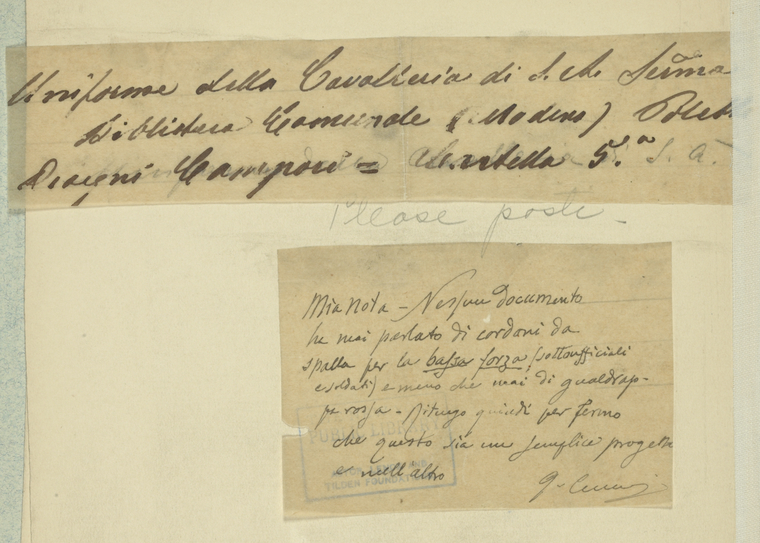 Uniforme della Cavalleria di S. A. Serma
Biblioteca Comunale (Modena)
Disegni Campori = Cartella 5.a
S. A.
Please paste
Mia nota – Nessun documento
ha mai parlato di cordoni da
spalla per la bassa forza (sottoufficiali
e soldati) e meno che mai di gualdrap-
pa rossa – Ritengo quindi per fermo
che questo sia un semplice progetto
e null'altro
PUBLIC LIBRARY
TILDEN FOUNDATIONS